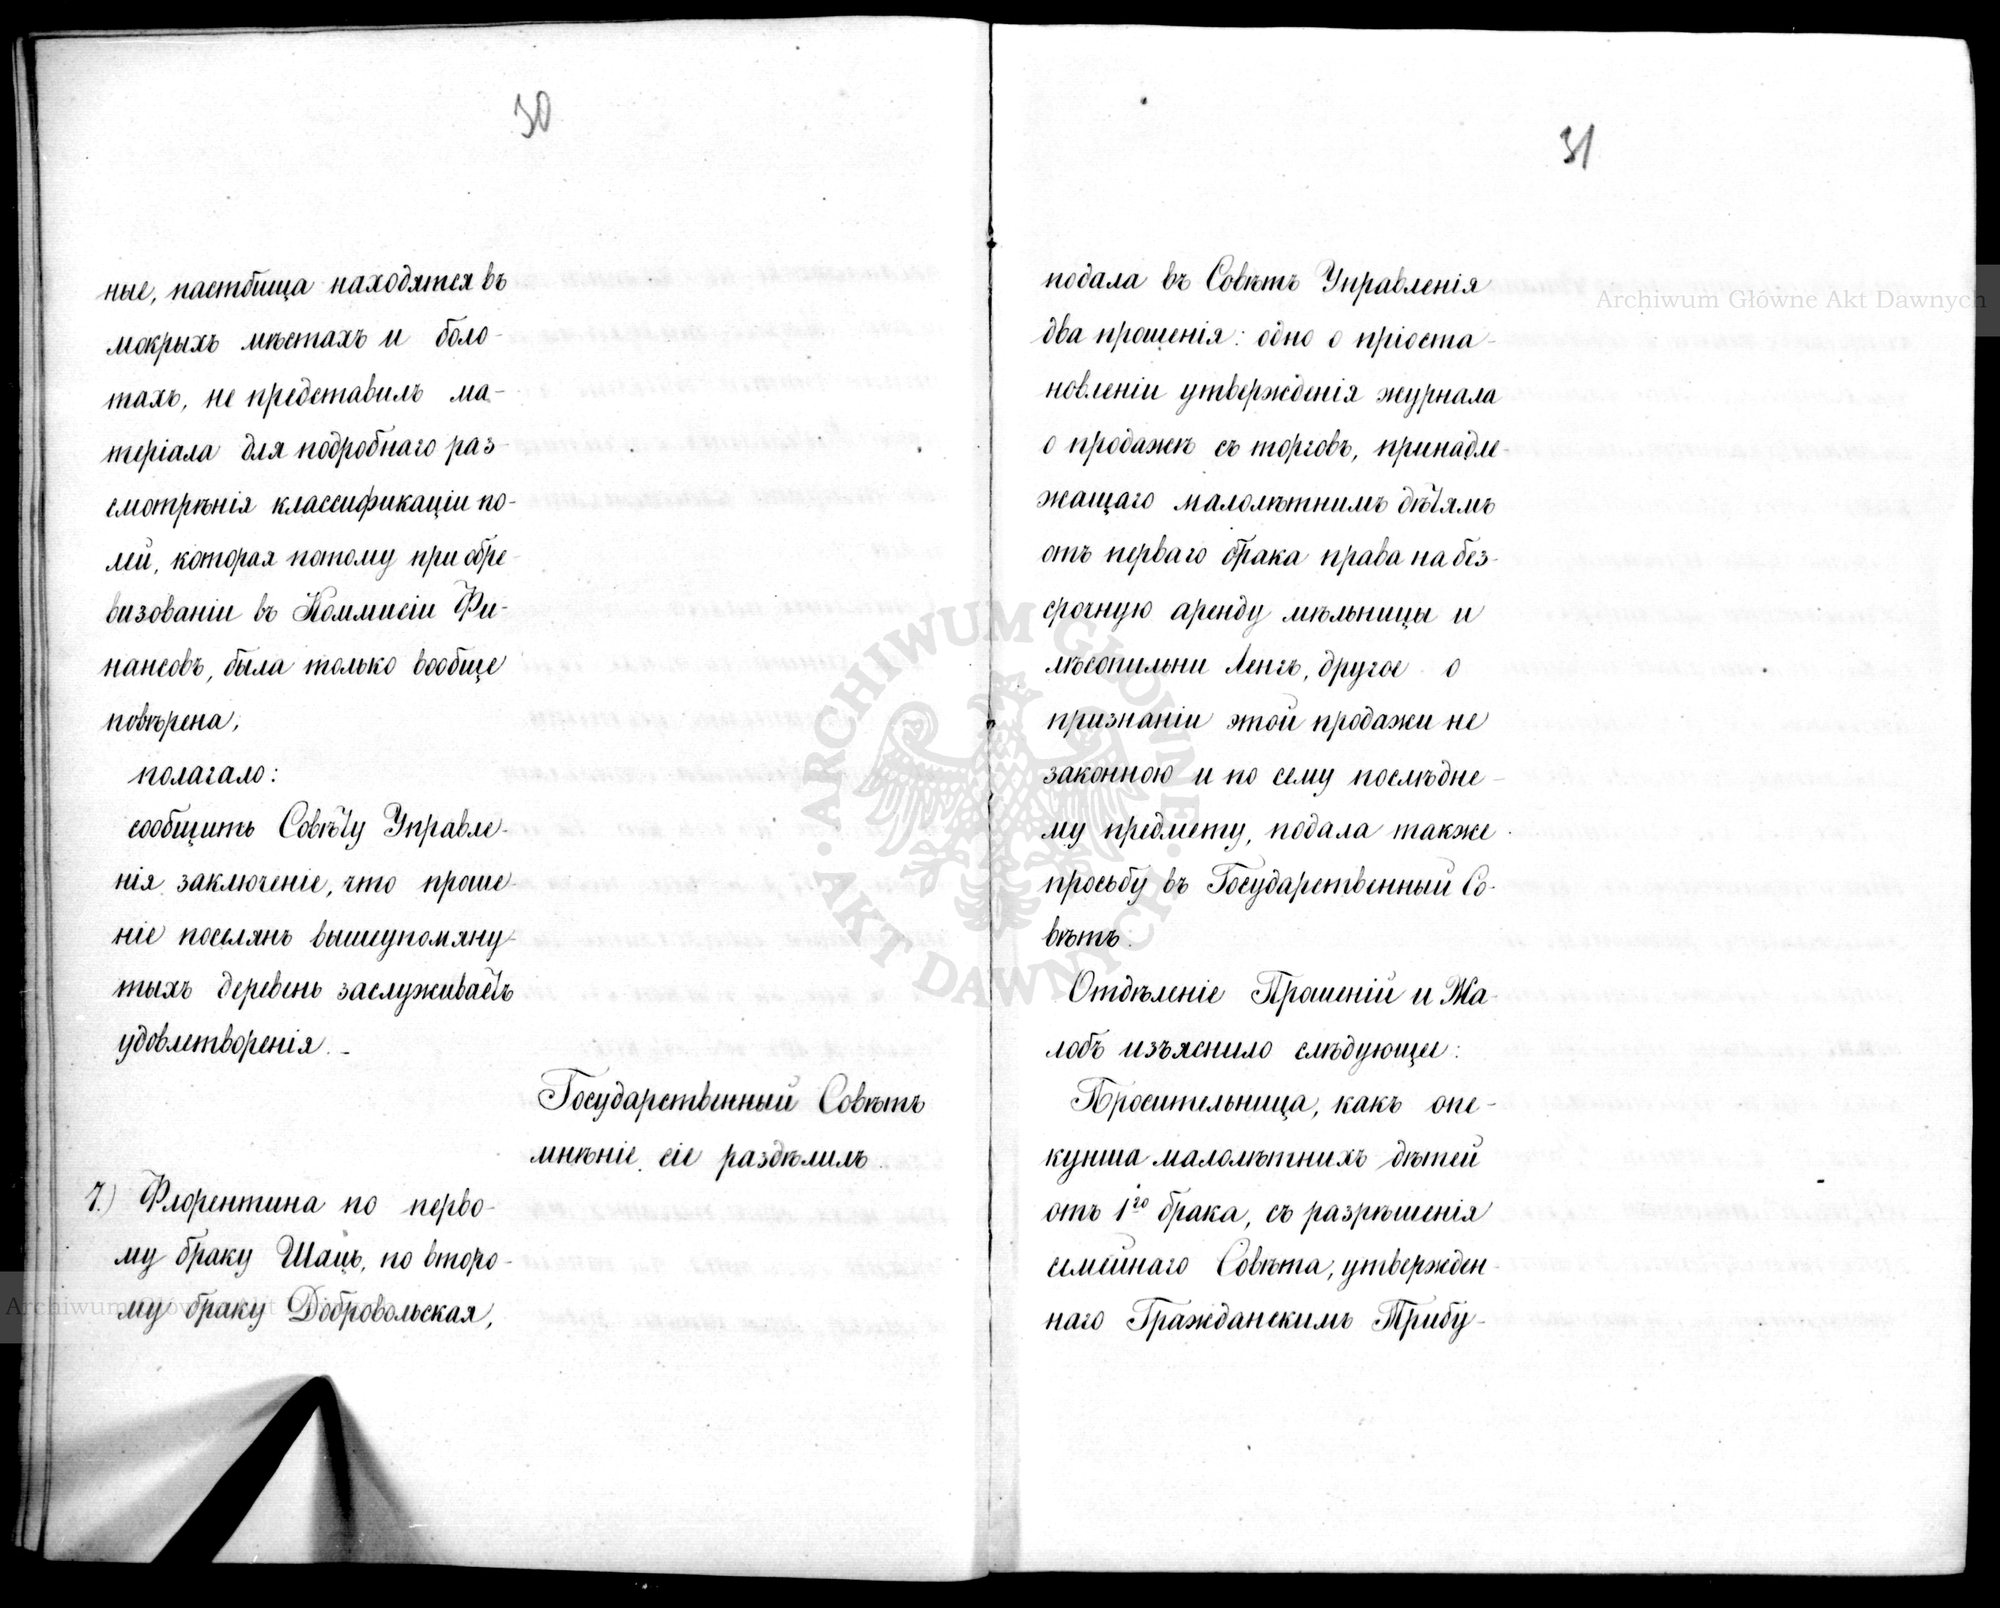 30
ные, пастбища находятся въ
мокрыхъ мѣстахъ и боло-
тахъ, не представилъ ма-
теріала для подробнаго раз-
смотрѣнія классификаціи по-
лей, которая потому при обре-
визованіи въ Коммисіи Фи-
нансовъ, была только вообще
повѣрена;
полагало:
сообщить Совѣту Управле-
нія заключеніе, что проше-
ніе поселянъ вышеупомяну-
тыхъ деревень заслуживаетъ
удовлетворенія. –
Государственный Совѣтъ
мнѣніе сіе раздѣлилъ.
7.) Флорентина по перво-
му браку Шацъ, по второ-
му браку Добровольская,
31
подала въ Совѣтъ Управленія
два прошенія: одно о пріоста-
новленіи утвержденія журнала
о продажѣ съ торговъ, принадле-
жащаго малолѣтнимъ дѣтямъ
отъ перваго брака права на без-
срочную аренду мѣльницы и
лѣсопильни Ленгъ, другое о
признаніи этой продажи не
законною и по сему послѣдне-
му предмету, подала также
просьбу въ Государственный Со-
вѣтъ.
Отдѣленіе Прошеній и Жа-
лобъ изъяснило слѣдующее:
Просительница, какъ опе-
кунша малолѣтнихъ дѣтей
отъ 1го брака, съ разрѣшенія
семейнаго Совѣта, утвержден-
наго Гражданскимъ Трибу-
Archiwum Główne Akt Dawnych
Archiwum Główne Akt Dawnych
ARCHIWUM GŁÓWNE AKT DAWNYCH